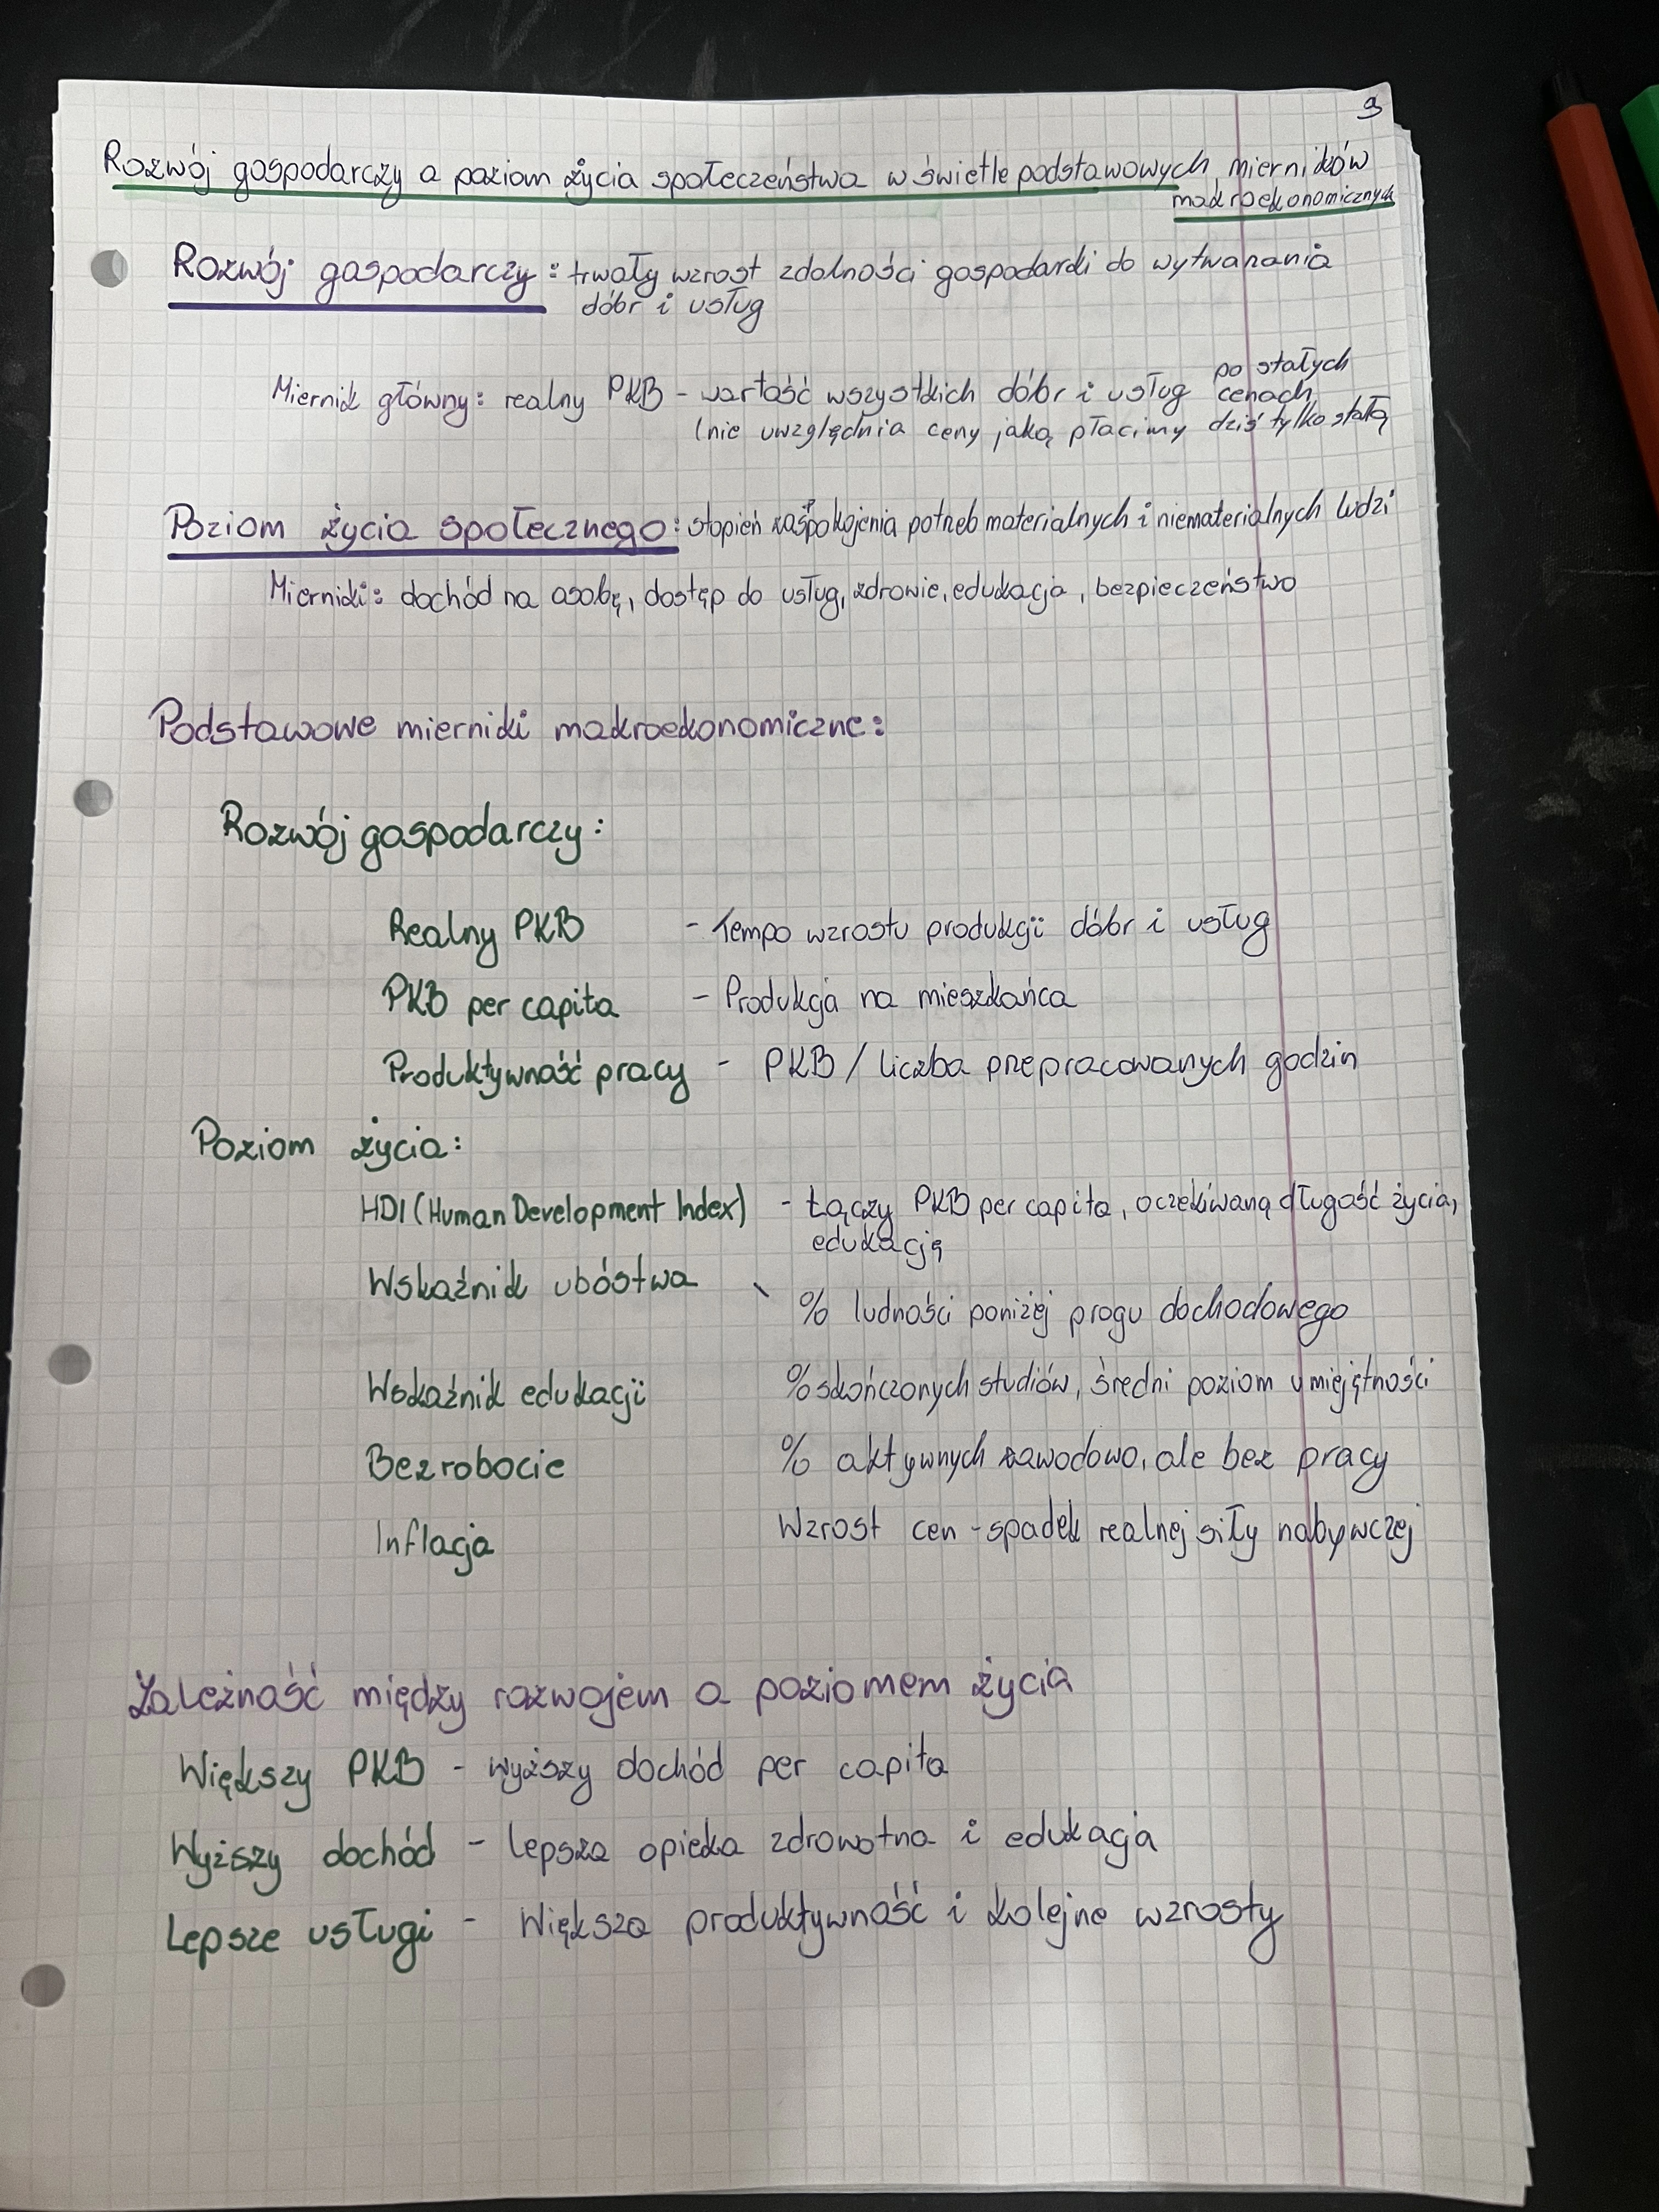 9
Rozwój gospodarczy a poziom życia społeczeństwa w świetle podstawowych mierników
makroekonomicznych
Rozwój gospodarczy: trwały wzrost zdolności gospodarki do wytwarzania
dóbr i usług
Miernik główny: realny PKB - wartość wszystkich dóbr i usług po stałych
cenach
(nie uwzględnia ceny jaką płacimy dziś tylko stałą
Poziom życia społecznego: stopień zaspokojenia potrzeb materialnych i niematerialnych ludzi
Mierniki: dochód na osobę, dostęp do usług, zdrowie, edukacja, bezpieczeństwo
Podstawowe mierniki makroekonomiczne:
Rozwój gospodarczy:
Realny PKB - Tempo wzrostu produkcji dóbr i usług
PKB per capita - Produkcja na mieszkańca
Produktywność pracy - PKB / liczba przepracowanych godzin
Poziom życia:
HDI (Human Development Index) - Łączy PKB per capita, oczekiwaną długość życia,
edukację
Wskaźnik ubóstwa - % ludności poniżej progu dochodowego
Wskaźnik edukacji % skończonych studiów, średni poziom umiejętności
Bezrobocie % aktywnych zawodowo, ale bez pracy
Inflacja Wzrost cen - spadek realnej siły nabywczej
Zależność między rozwojem a poziomem życia
Większy PKB - wyższy dochód per capita
Wyższy dochód - lepsza opieka zdrowotna i edukacja
Lepsze usługi - Większa produktywność i kolejne wzrosty